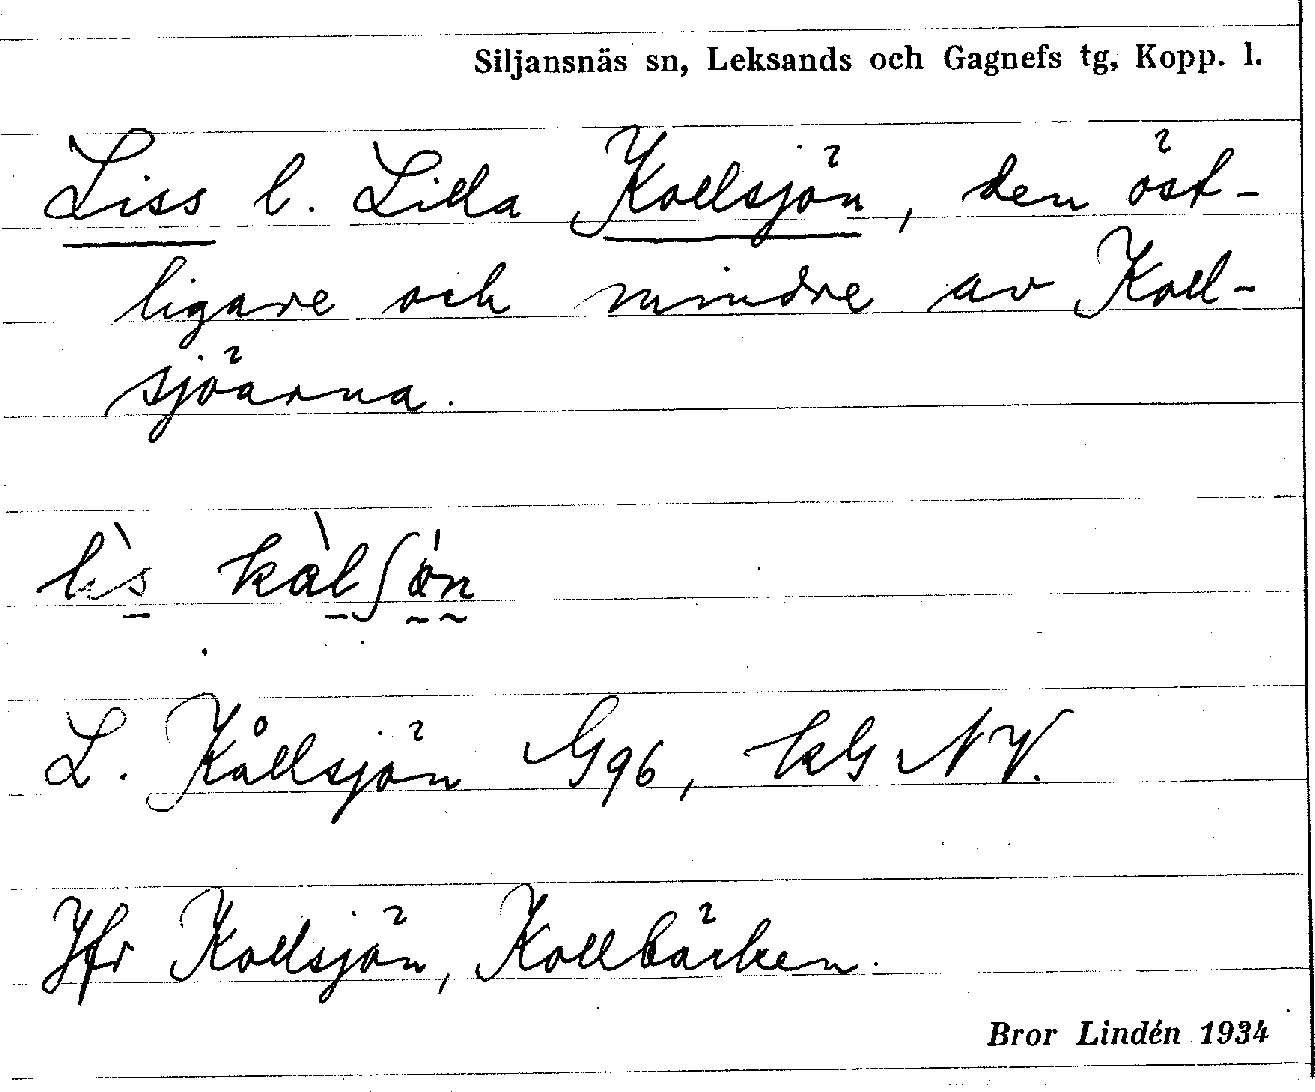 Siljansnäs sn, Leksands och Gagnefs tg, Kopp. l.
Liss l. Lilla Kollsjön, den öst-
ligare och mindre av Koll-
sjöarna.
lìs kàlʃön
L. Kållsjön G96, kG NV.
Jfr Kollsjön, Kollbäcken.
Bror Lindén 1934